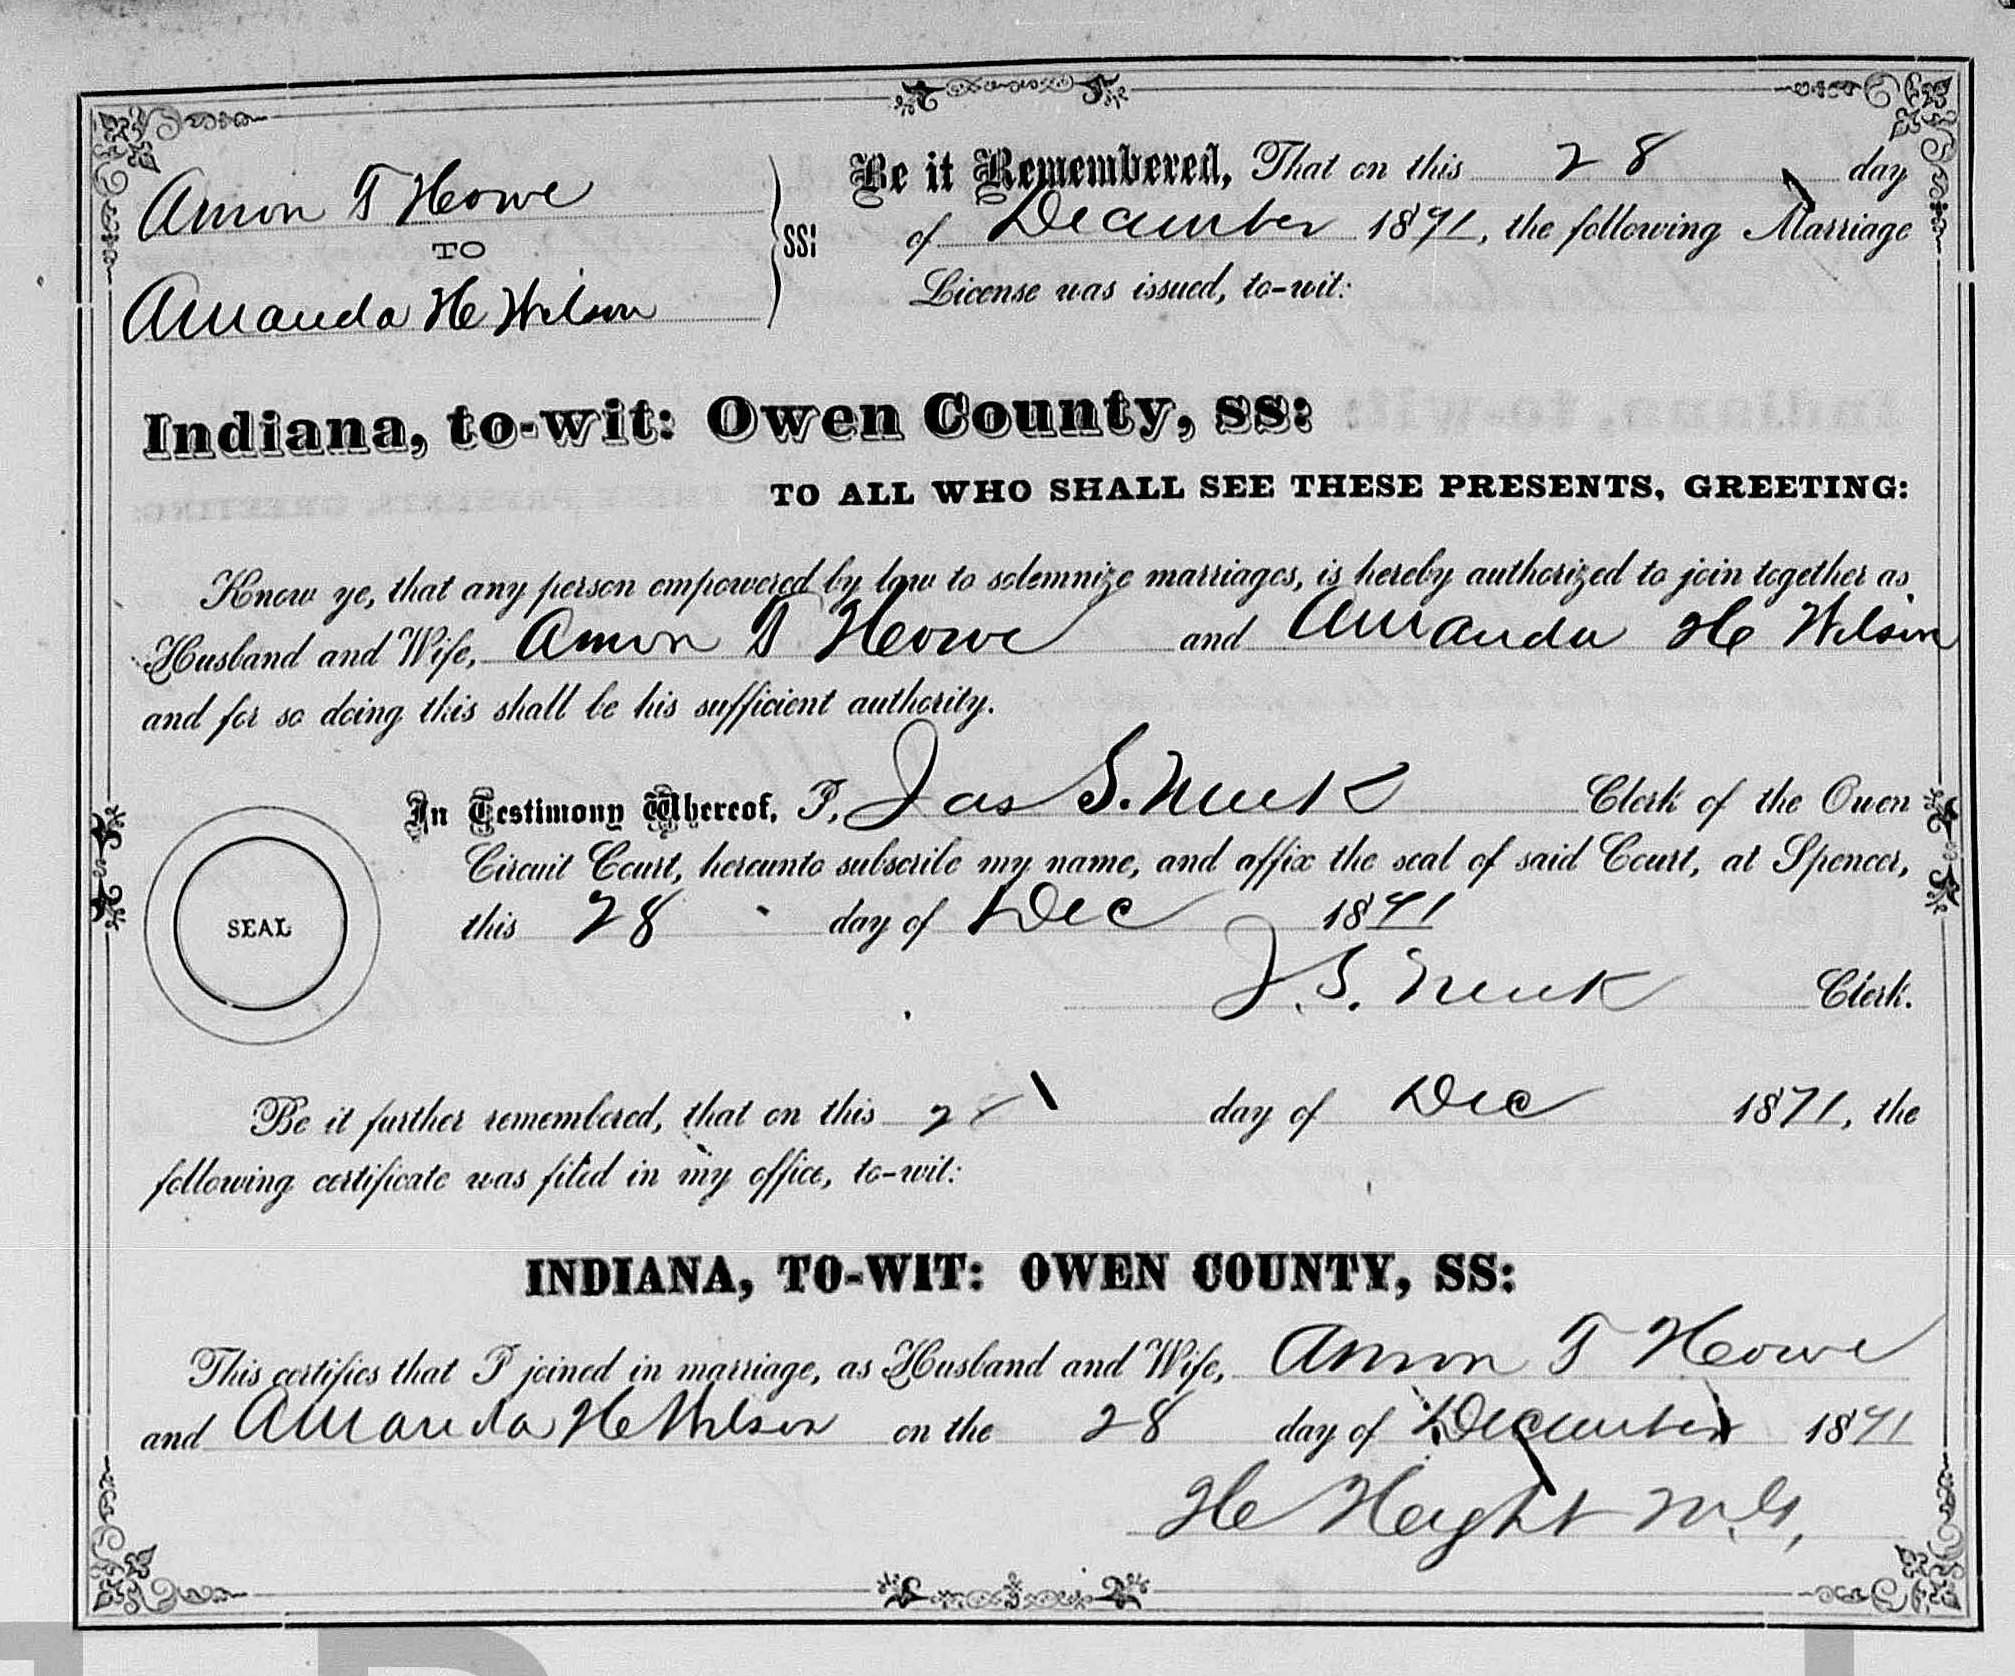 Amon T Howe
TO
Amanda H Wilson
SS:
Be it Remembered, That on this 28 day
of December 1871, the following Marriage
License was issued, to-wit:
Indiana, to-wit: Owen County, ss:
TO ALL WHO SHALL SEE THESE PRESENTS, GREETING:
Know ye, that any person empowered by law to solemnize marriages, is hereby authorized to join together as
Husband and Wife, Amon T Howe and Amanda H Wilson
and for so doing this shall be his sufficient authority.
In Testimony Whereof, I, Jas S. Meek Clerk of the Owen
Circuit Court, hereunto subscribe my name, and affix the seal of said Court, at Spencer,
SEAL
this 28 day of Dec 1871
J. S. Meek Clerk.
Be it further remembered, that on this day of Dec 1871, the
following certificate was filed in my office, to-wit:
INDIANA, TO-WIT: OWEN COUNTY, SS:
This certifies that I joined in marriage, as Husband and Wife, Amon T Howe
and Amanda H Wilson on the 28 day of December 1871
H Height M.G.